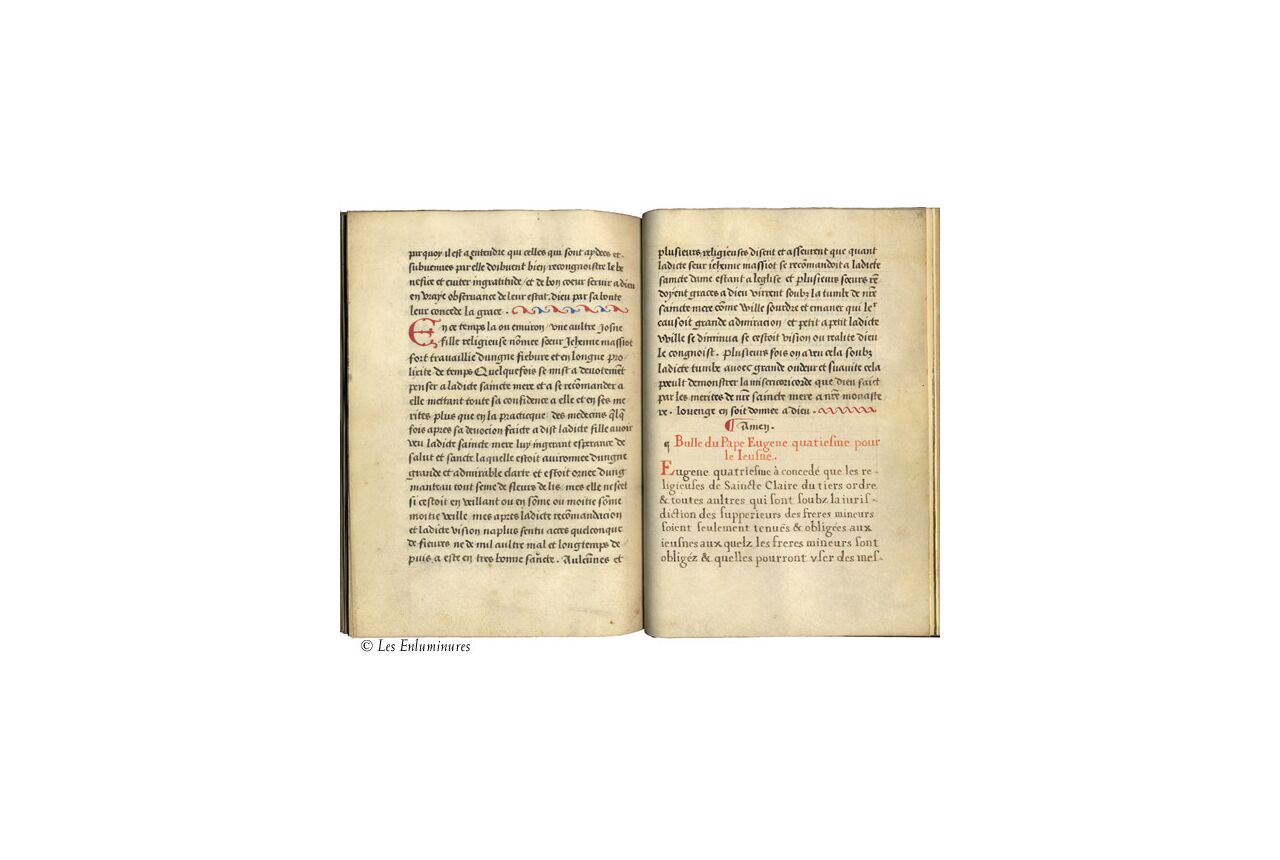 par quoy il est a entendre qui celles qui sont aydees et
subuenues par elle doibuent bien recongnoistre le be
nefice et euiter ingratitude / et de bon coeur seruir a dieu
en vraye obseruance de leur estat . dieu par sa bonte
leur concede la grace .
En ce temps la ou enuiron / vne aultre Josne
fille religieuse nōmee sœur Jehenne massiot
fort trauaillie dungne fiebure et en longue pro
lixite de temps Quelquefois se mist a deuotement
penser a ladicte saincte mere et a se recōmander a
elle mettant toute sa confidence a elle et en ses me
rites plus que en la practicque des medecins
fois apres sa deuocion faicte a dist ladicte fille auoir
veu ladicte saincte mere luy ingerant esperance de
salut et sancte laquelle estoit auironnee dungne
grande et admirable clarte et estoit ornee dung
manteau tout seme de fleurs de lis / mes elle ne scet
si cestoit en veillant ou en sōme ou moitie sōme
moitie veille / mes apres ladicte recōmandacion
et ladicte vision na plus sentu acces quelconque
de fieures ne de nul aultre mal et long temps de-
puis a este en tres bonne sancte . Aulcūnes et
plusieurs religieuses disent et asseurent que quant
ladicte seur iehenne massiot se recōmandoit a ladicte
saincte dame estant a leglise et plusieurs sœurs rē
doyent graces a dieu virrent soubz la tumbe de nrē
saincte mere cōme wille sourdre et emaner qui leʳ
causoit grande admiracion / et petit a petit ladicte
wille se diminua se cestoit vision ou realite dieu
le congnoist . plusieurs fois on a veu cela soubz
ladicte tumbe auoec grande oudeur et suauite cela
peult demonstrer la misericorde que dieu faict
par les merites de nrē saincte mere a nrē monaste
re . louenge en soit donnee a dieu .
¶ Amen .
¶ Bulle du Pape Eugene quatriesme pour
le Ieusne .
Eugene quatriesme à concedé que les re-
ligieuses de Saincte Claire du tiers ordre
& toutes aultres qui sont soubz la iuris-
diction des supperieurs des freres mineurs
soient seulement tenués & obligées aux
ieusnes aux quelz les freres mineurs sont
obligéz & quelles pourront vser des mes-
© Les Enluminures